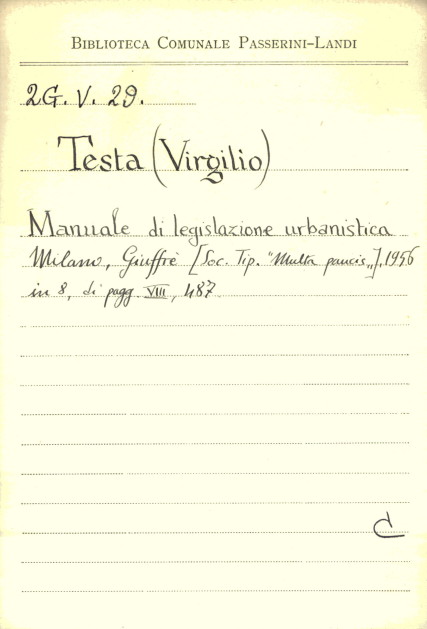 BIBLIOTECA COMUNALE PASSERINI-LANDI
2G. V. 29.
Testa (Virgilio)
Manuale di legislazione urbanistica
Milano, Giuffrè [Soc. Tip. "Multa paucis„], 1956
in 8, di pagg. VIII, 487.